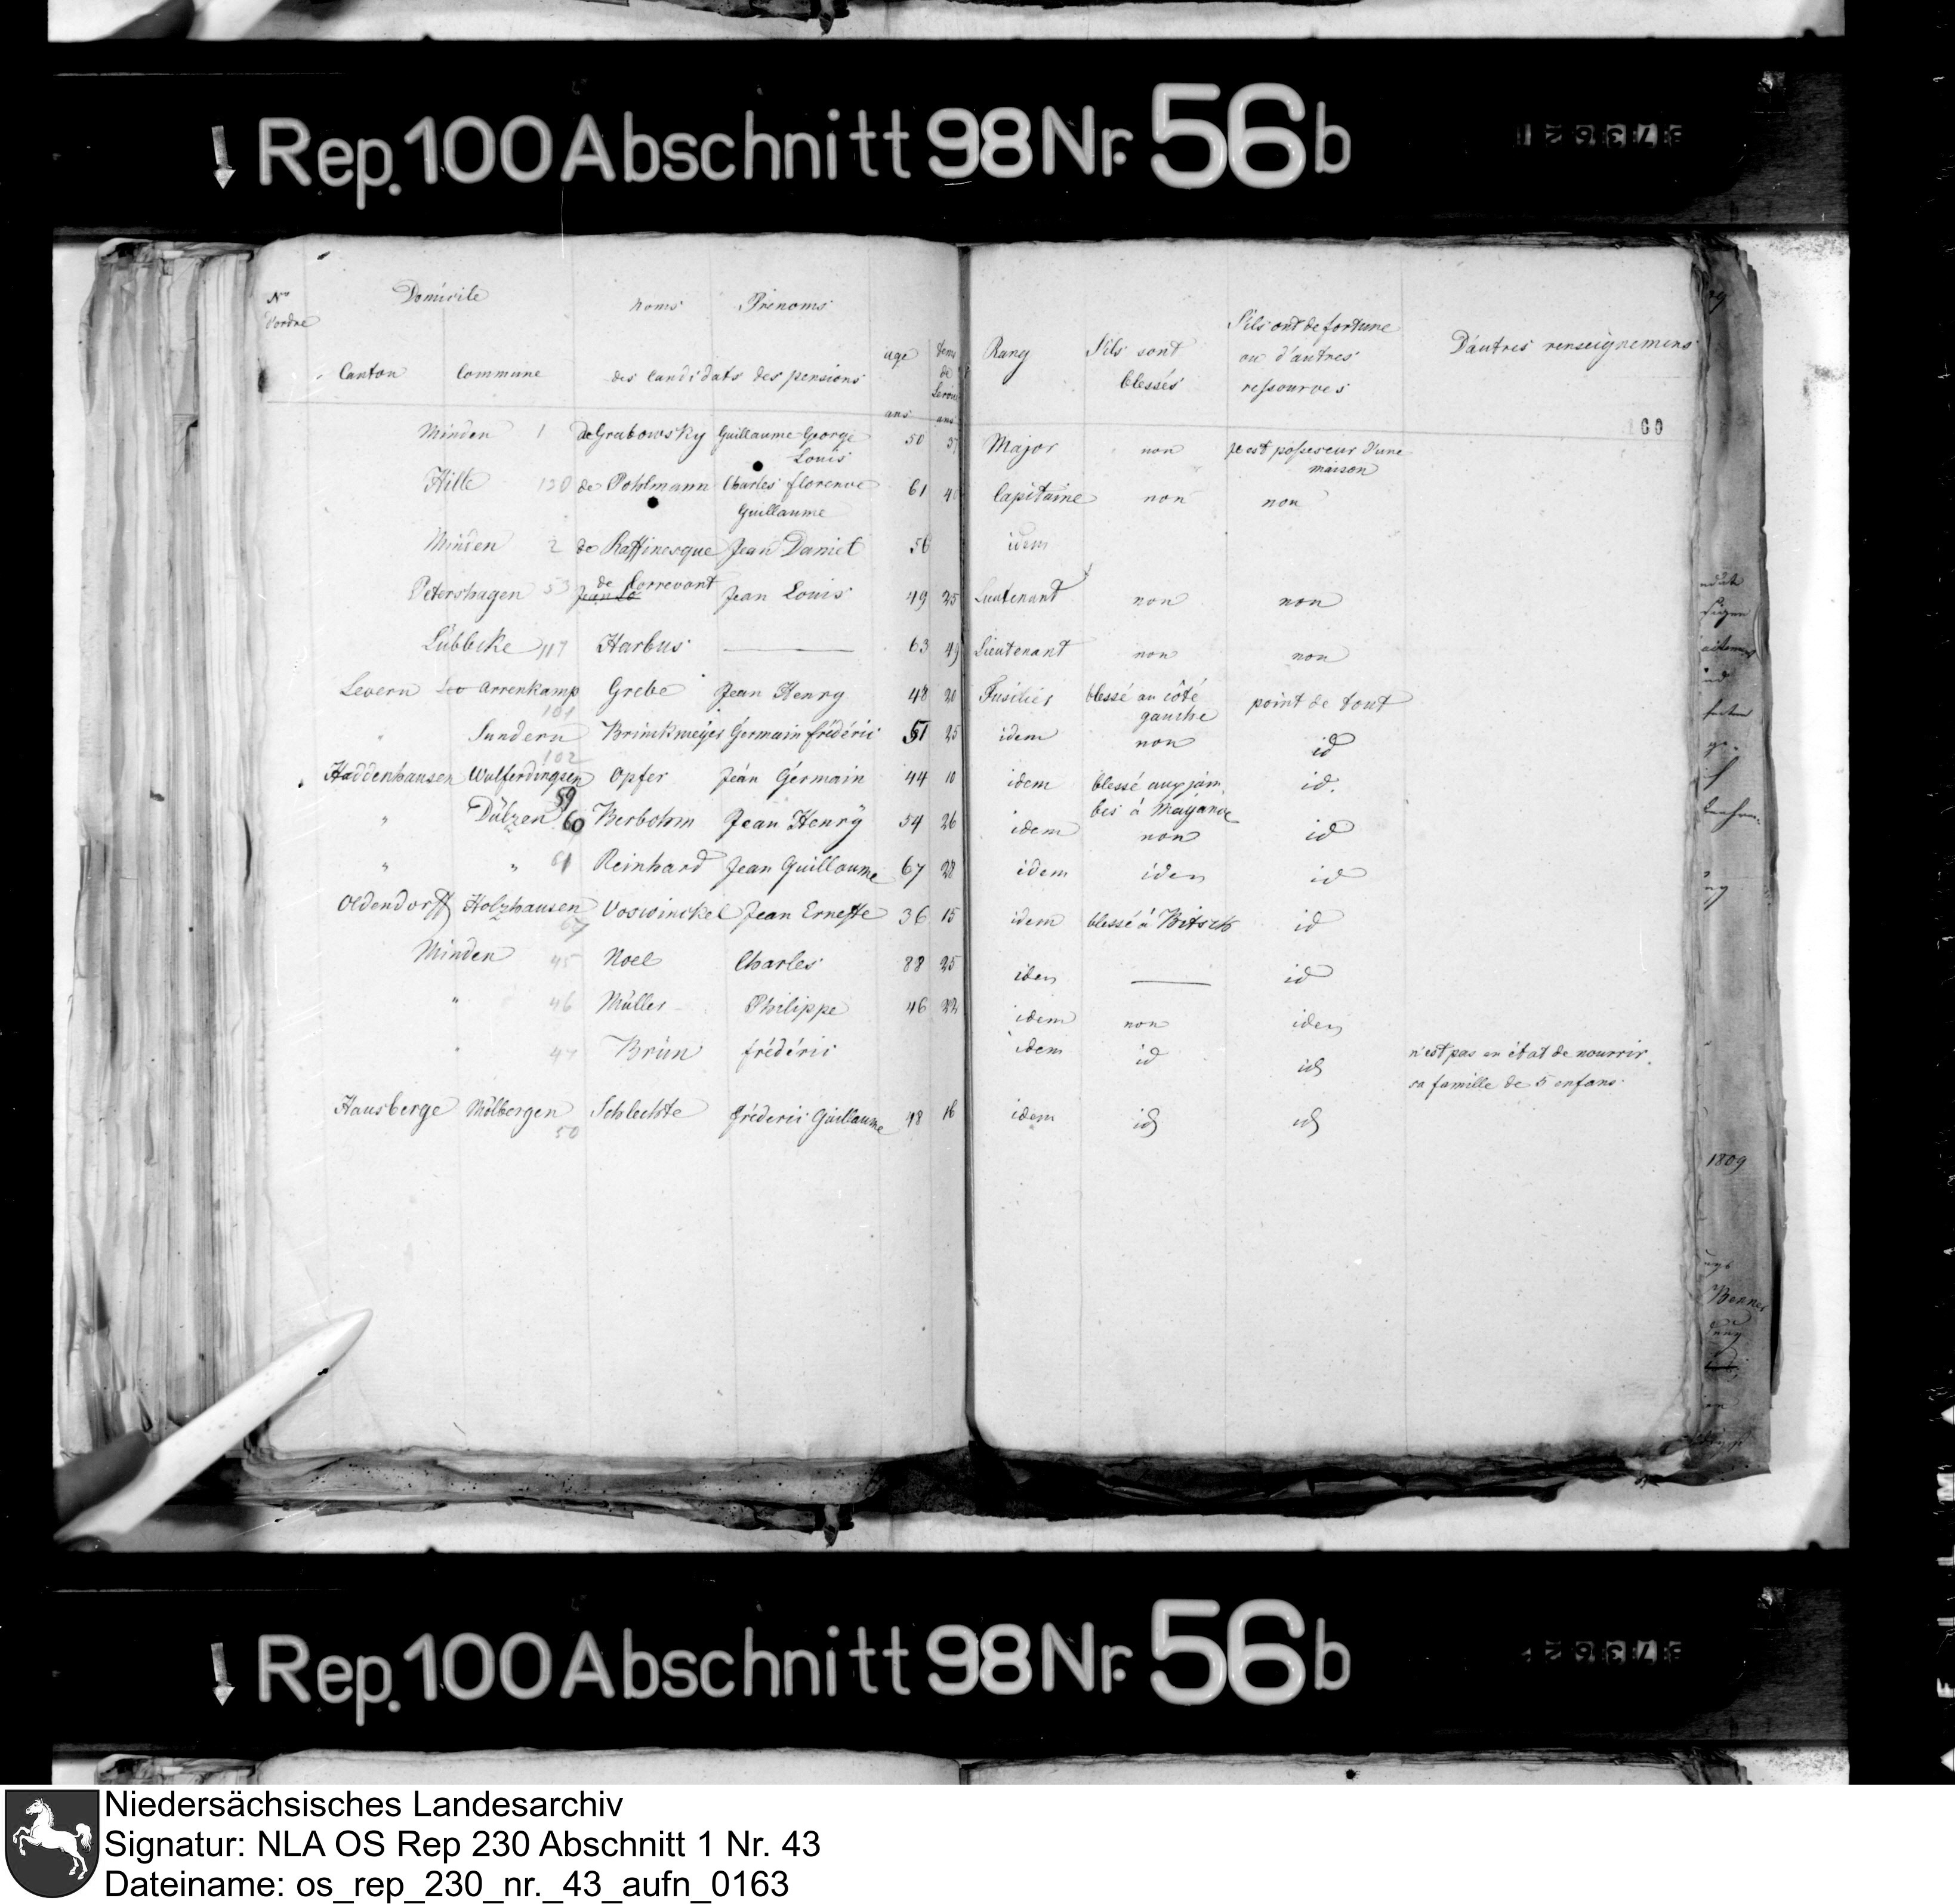 Rep. 100 Abschnitt 98 Nr. 56b
No d'ordre Domicile noms Prénoms
Canton Commune des candidats des pensions age tems de service
ans ans
Rang S'ils sont blessés S'ils ont de fortune ou d'autres ressources D'autres renseignemens
100
Minden 1 de Grabowsky Guillaume George Louis 50 Major non il est possesseur d'une maison
Hille 120 de Pohlmann Charles florence Guillaume 61 Capitaine non non
Minden 2 de Raffinesque Jean Daniel 56 idem
Petershagen 53 de Correvont Jean Louis 49 25 Lieutenant non non
Lübbeke 117 Harbus — 63 49 Lieutenant non non
Levern Arrenkamp 101 Grebe Jean Henry 48 20 Fusilier blessé au côté gauche point de tout
" Sundern 102 Brinckmeyer Germain frédéric 51 25 idem non id
Haddenhausen Wulferdingsen 59 Opfer Jean Germain 44 10 idem blessé aux jambes à Mayance id.
" Dützen 60 Berbohm Jean Henry 54 26 idem non id
" " 61 Reinhard Jean Guillaume 67 28 idem idem id
Oldendorff Holzhausen 67 Voswinckel Jean Erneste 36 15 idem blessé à Bitsch id
Minden 45 Noel Charles 88 25 idem — id
" 46 Müller Philippe 46 22 idem non idem
" 47 Brün frédéric idem id id n'est pas en état de nourrir
sa famille de 5 enfans.
Hausberge Mölbergen 50 Schlechte fréderic Guillaume 48 16 idem id id
1809
Rep. 100 Abschnitt 98 Nr. 56b
Niedersächsisches Landesarchiv
Signatur: NLA OS Rep 230 Abschnitt 1 Nr. 43
Dateiname: os_rep_230_nr._43_aufn_0163